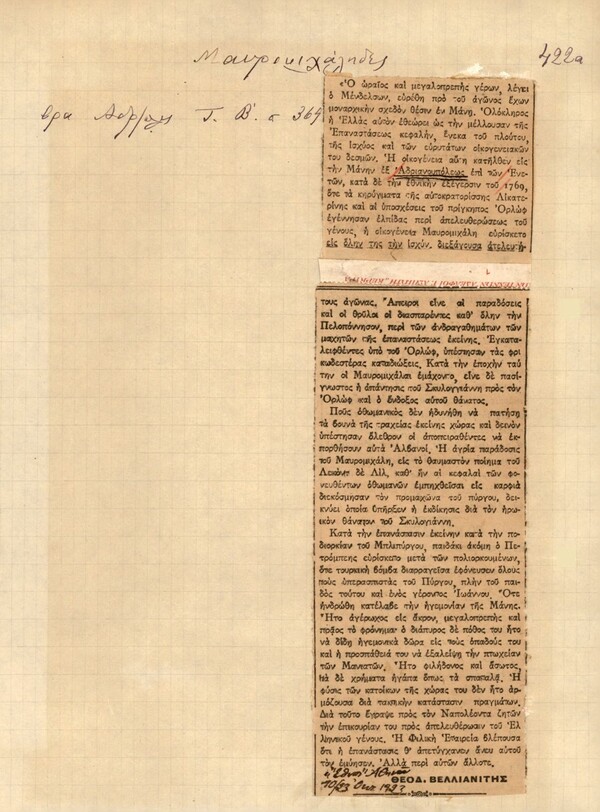 Μαυρομιχάληδες
422α
ὅρα
Τ. Β΄. σ 369
«Ὁ ὡραῖος καὶ μεγαλοπρεπὴς γέρων, λέγει
ὁ Μένδελσων, εὑρέθη πρὸ τοῦ ἀγῶνος ἔχων
μοναρχικὴν σχεδὸν θέσιν ἐν Μάνῃ. Ὁλόκληρος
ἡ Ἑλλὰς αὐτὸν ἐθεώρει ὡς τὴν μέλλουσαν τῆς
Ἐπαναστάσεως κεφαλήν, ἕνεκα τοῦ πλούτου,
τῆς ἰσχύος καὶ τῶν εὐρυτάτων οἰκογενειακῶν
του δεσμῶν. Ἡ οἰκογένεια αὕτη κατῆλθεν εἰς
τὴν Μάνην ἐξ Ἀδριανουπόλεως ἐπὶ τῶν Ἐνε-
τῶν, κατὰ δὲ τὴν ἐθνικὴν ἐξέγερσιν τοῦ 1769,
ὅτε τὰ κηρύγματα τῆς αὐτοκρατορίσσης Αἰκατε-
ρίνης καὶ αἱ ὑποσχέσεις τοῦ πρίγκηπος Ὀρλὼφ
ἐγέννησαν ἐλπίδας περὶ ἀπελευθερώσεως τοῦ
γένους, ἡ οἰκογένεια Μαυρομιχάλη εὑρίσκετο
εἰς ὅλην της τὴν ἰσχύν, διεξάγουσα ἀτελευτή-
τους ἀγῶνας. Ἄπειροι εἶνε αἱ παραδόσεις
καὶ οἱ θρῦλοι οἱ διασπαρέντες καθ' ὅλην τὴν
Πελοπόννησον, περὶ τῶν ἀνδραγαθημάτων τῶν
μαχητῶν τῆς ἐπαναστάσεως ἐκείνης. Ἐγκατα-
λειφθέντες ὑπὸ τοῦ Ὀρλώφ, ὑπέστησαν τὰς φρι
κωδεστέρας καταδιώξεις. Κατὰ τὴν ἐποχὴν ταύ
την οἱ Μαυρομιχάλαι ἐμάχοντο, εἶνε δὲ πασί-
γνωστος ἡ ἀπάντησις τοῦ Σκυλογιάννη πρὸς τὸν
Ὀρλὼφ καὶ ὁ ἔνδοξος αὐτοῦ θάνατος.
Ποῦς ὀθωμανικὸς δὲν ἠδυνήθη νὰ πατήσῃ
τὰ βουνὰ τῆς τραχείας ἐκείνης χώρας καὶ δεινὸν
ὑπέστησαν ὄλεθρον οἱ ἀποπειραθέντες νὰ ἐκ-
πορθήσουν αὐτὰ Ἀλβανοί. Ἡ ἀγρία παράδοσις
τοῦ Μαυρομιχάλη, εἰς τὸ θαυμαστὸν ποίημα τοῦ
Λεκὸντ δὲ Λίλ, καθ' ἣν αἱ κεφαλαὶ τῶν φο-
νευθέντων ὀθωμανῶν ἐμπηχθεῖσαι εἰς καρφιὰ
διεκόσμησαν τὸν προμαχῶνα τοῦ πύργου, δει-
κνύει ὁποία ὑπῆρξεν ἡ ἐκδίκησις διὰ τὸν ἡρω-
ικὸν θάνατον τοῦ Σκυλογιάννη.
Κατὰ τὴν ἐπανάστασιν ἐκείνην κατὰ τὴν πο-
λιορκίαν τοῦ Μπλιπύργου, παιδάκι ἀκόμη ὁ Πε-
τρόμπεης εὑρίσκετο μετὰ τῶν πολιορκουμένων,
ὅτε τουρκικὴ βόμβα διαρραγεῖσα ἐφόνευσεν ὅλους
τοὺς ὑπερασπιστὰς τοῦ Πύργου, πλὴν τοῦ παι-
δὸς τούτου καὶ ἑνὸς γέροντος Ἰωάννου. Ὅτε
ἠνδρώθη κατέλαβε τὴν ἡγεμονίαν τῆς Μάνης.
Ἦτο ἀγέρωχος εἰς ἄκρον, μεγαλοπρεπὴς καὶ
πρᾷος τὸ φρόνημα· ὁ διάπυρος δὲ πόθος του ἦτο
νὰ δίδῃ ἡγεμονικὰ δῶρα εἰς τοὺς ὀπαδούς του
καὶ ἡ προσπάθειά του νὰ ἐξαλείψῃ τὴν πτωχείαν
τῶν Μανιατῶν. Ἦτο φιλήδονος καὶ ἄσωτος,
τὰ δὲ χρήματα ἠγάπα ὅπως τὰ σπαταλᾷ. Ἡ
φύσις τῶν κατοίκων τῆς χώρας του δὲν ἦτο ἁρ-
μόζουσα διὰ τακτικὴν κατάστασιν πραγμάτων.
Διὰ τοῦτο ἔγραψε πρὸς τὸν Ναπολέοντα ζητῶν
τὴν ἐπικουρίαν του πρὸς ἀπελευθέρωσιν τοῦ Ἑλ
ληνικοῦ γένους. Ἡ Φιλικὴ Ἑταιρεία βλέπουσα
ὅτι ἡ ἐπανάστασις θ' ἀπετύγχανεν ἄνευ αὐτοῦ
τὸν ἐμύησεν. Ἀλλὰ περὶ αὐτῶν ἄλλοτε.
ΘΕΟΔ. ΒΕΛΛΙΑΝΙΤΗΣ